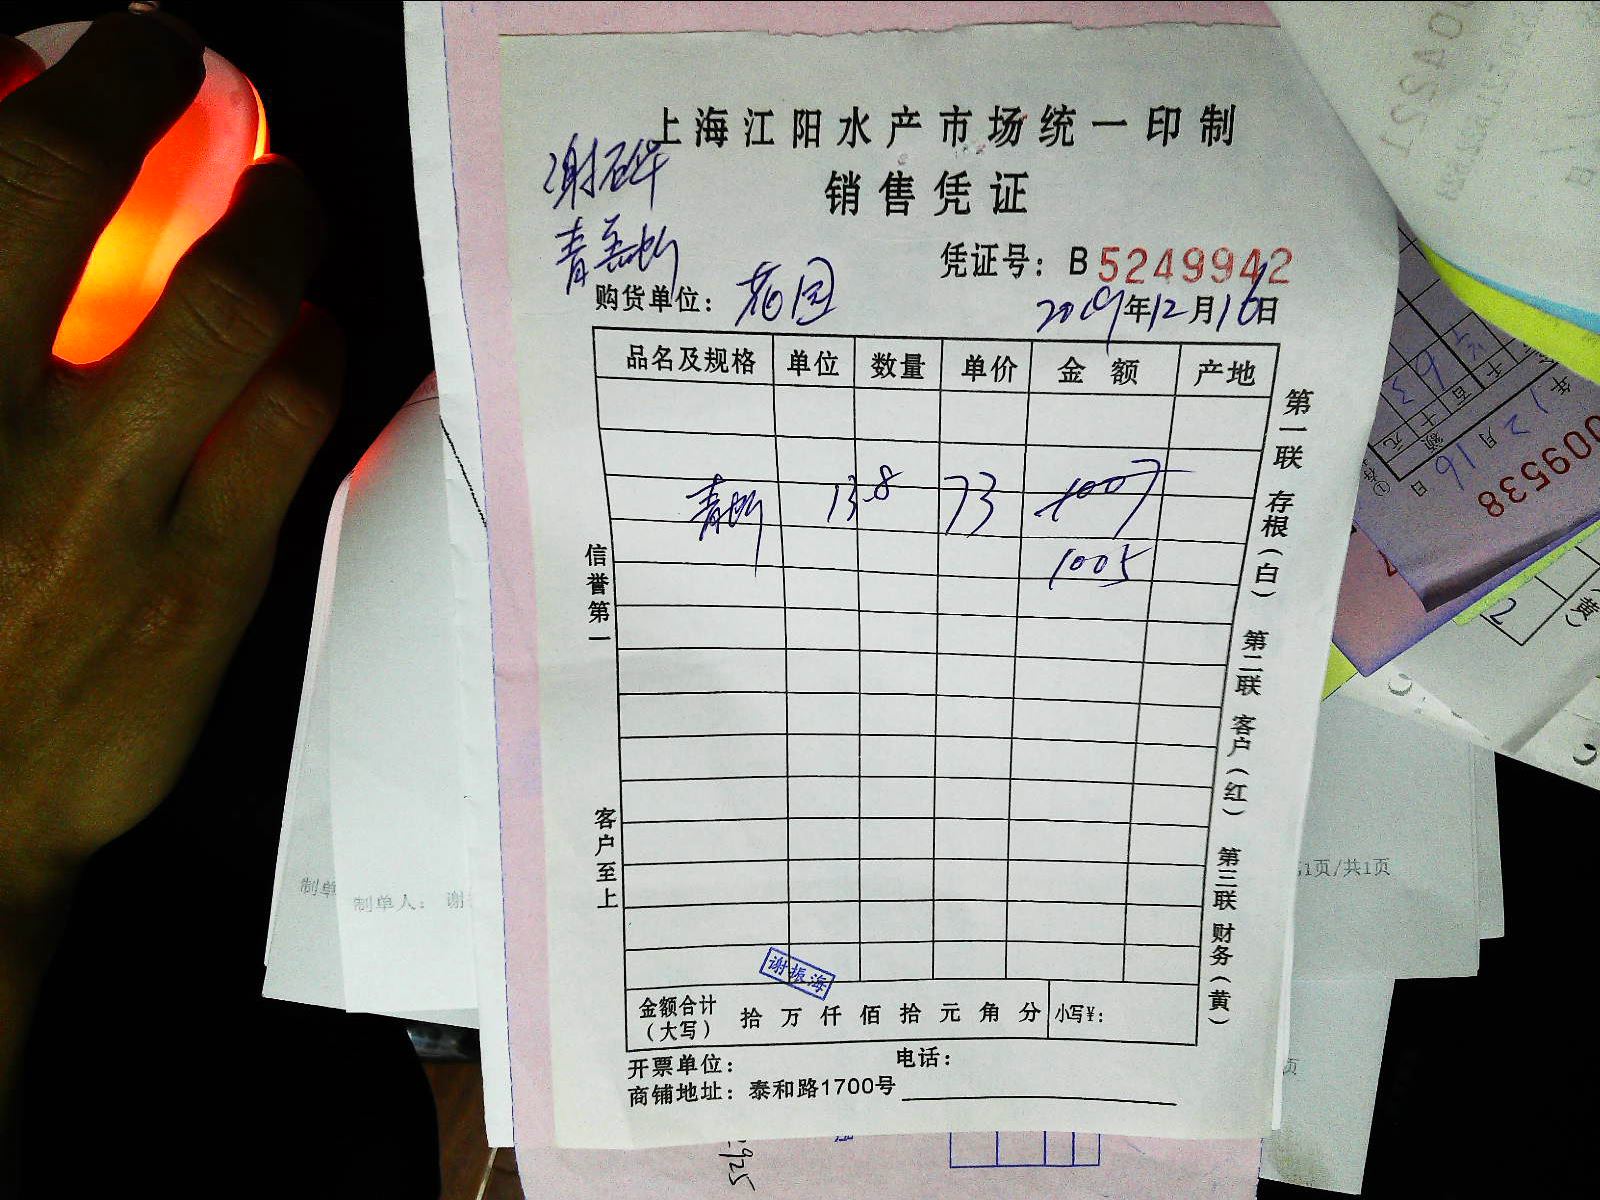 上海江阳水产市场统一印制
销售凭证
凭证号：B 5249942
购货单位：花园
2019年12月16日
品名及规格 单位 数量 单价 金额 产地
青 13.8 73 1007
1005
信誉第一
客户至上
第一联 存根（白） 第二联 客户（红） 第三联 财务（黄）
谢振海
金额合计（大写） 拾 万 仟 佰 拾 元 角 分 小写¥：
开票单位： 电话：
商铺地址：泰和路1700号
制单
制单人：谢
1页/共1页
页
009538
12月16日
2
（黄）
925